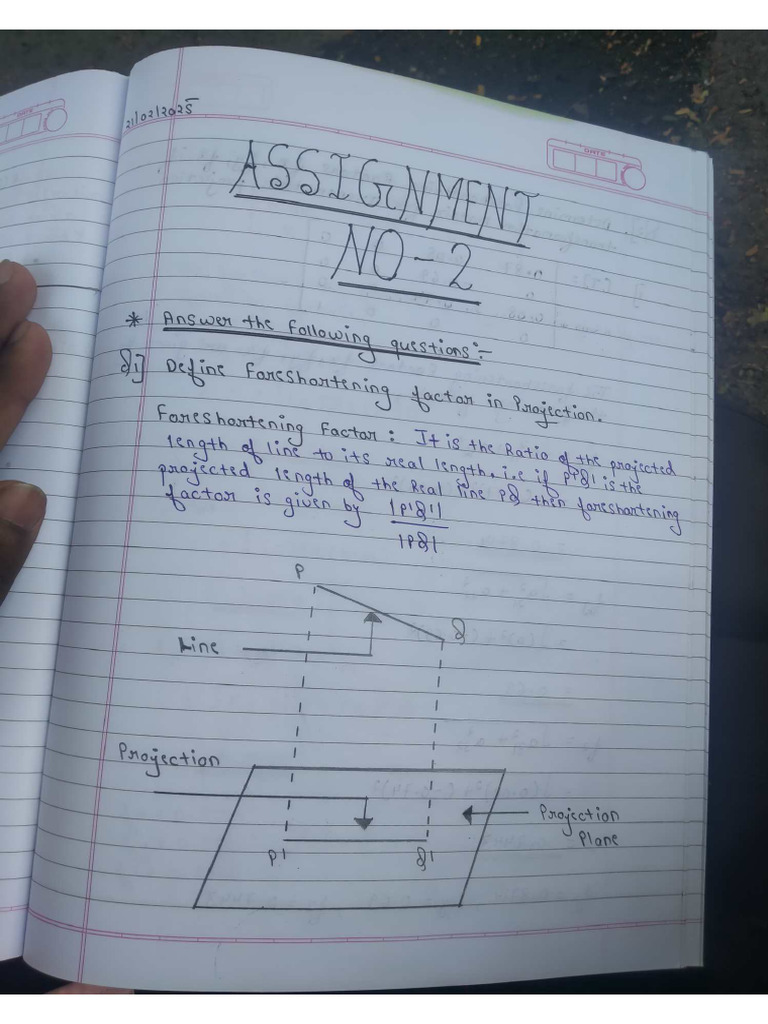 21/02/2025
DATE
ASSIGNMENT
NO-2
* Answer the following questions:-
Q1] Define Foreshortening factor in Projection.
Foreshortening Factor: It is the Ratio of the projected
length of line to its real length, i.e if P'Q' is the
projected length of the Real line PQ then foreshortening
factor is given by |P'Q'|
|PQ|
P
Q
Line
Projection
Projection
Plane
P'
Q'